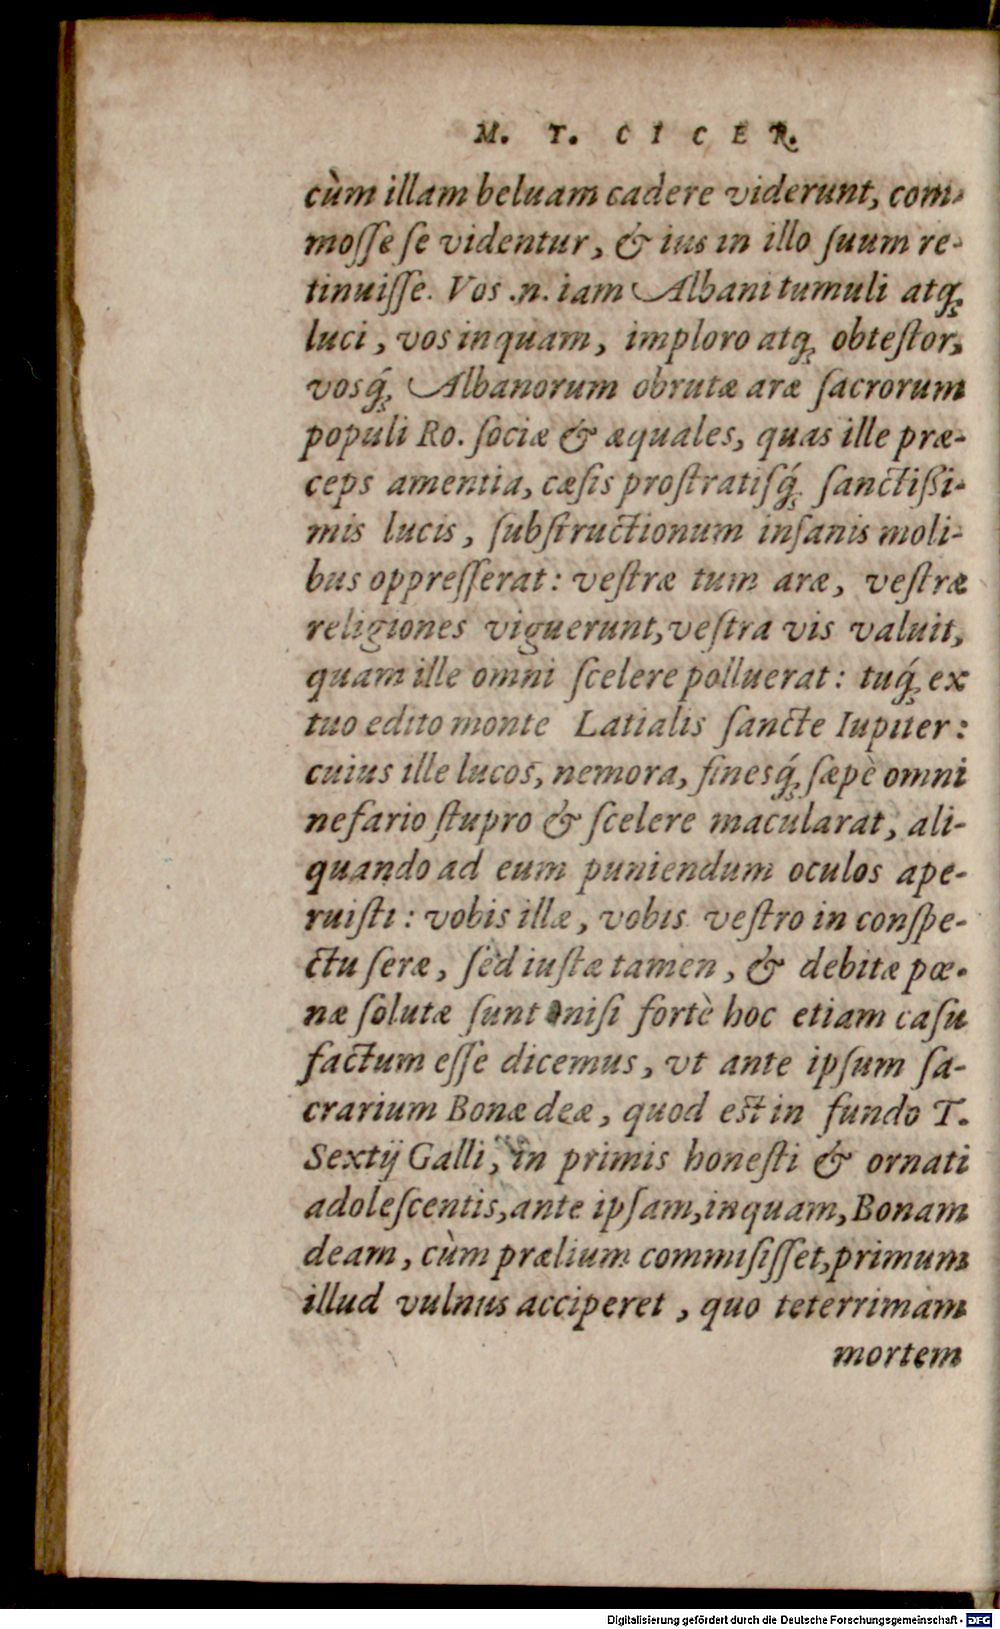 M. T. CICER.
cùm illam beluam cadere viderunt, com-
moſſe ſe videntur, & ius in illo ſuum re-
tinuiſſe. Vos .n. iam Albani tumuli atq;
luci, vos inquam, imploro atq; obteſtor,
vosq́; Albanorum obrutæ aræ ſacrorum
populi Ro. ſociæ & æquales, quas ille præ-
ceps amentia, cæſis proſtratiſq́; ſanctißi-
mis lucis, ſubſtructionum inſanis moli-
bus oppreſſerat: veſtræ tum aræ, veſtræ
religiones viguerunt, veſtra vis valuit,
quam ille omni ſcelere polluerat: tuq́; ex
tuo edito monte Latialis ſancte Iupiter:
cuius ille lucos, nemora, fineſq́; ſæpè omni
nefario ſtupro & ſcelere macularat, ali-
quando ad eum puniendum oculos ape-
ruiſti: vobis illæ, vobis veſtro in conſpe-
ctu ſeræ, ſed iuſtæ tamen, & debitæ pœ-
næ ſolutæ ſunt niſi fortè hoc etiam caſu
factum eſſe dicemus, vt ante ipſum ſa-
crarium Bonæ deæ, quod est in fundo T.
Sextij Galli, in primis honeſti & ornati
adoleſcentis, ante ipſam, inquam, Bonam
deam, cùm prælium commiſiſſet, primum
illud vulnus acciperet, quo teterrimam
mortem
Digitalisierung gefördert durch die Deutsche Forschungsgemeinschaft - DFG